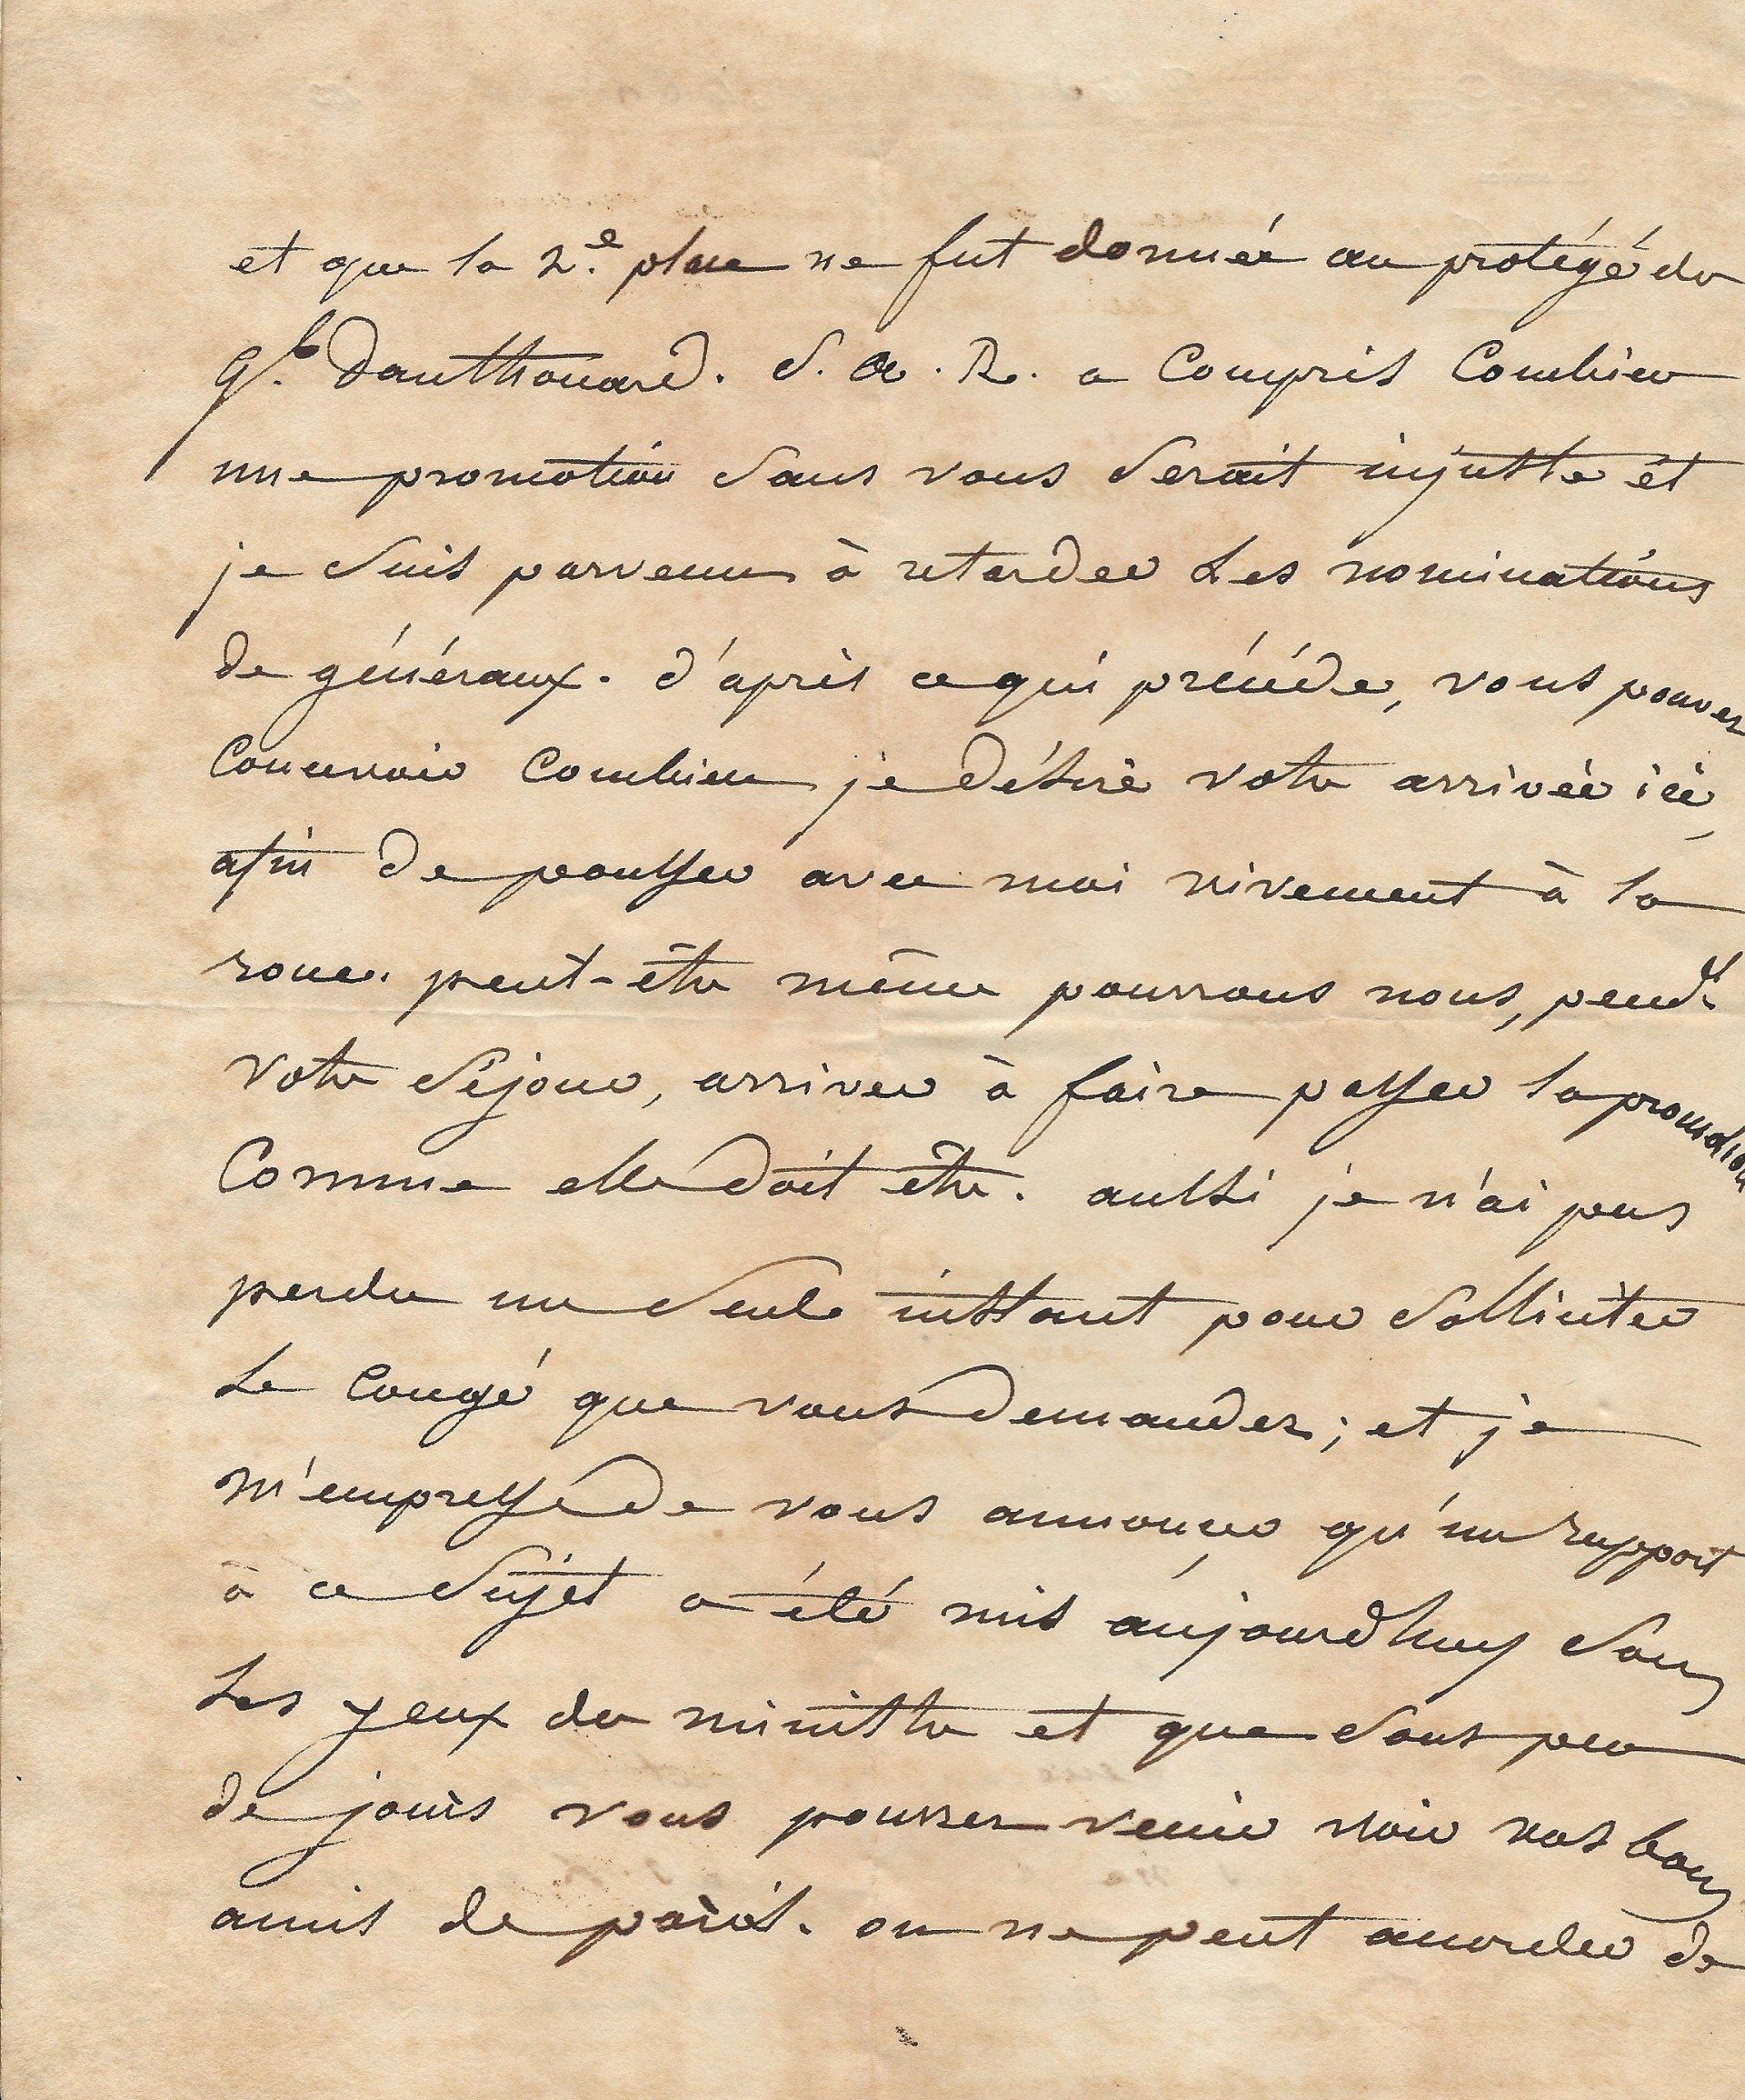 et que la 2.e place ne fut donnée au protégé du
g.l Danthouard. S. A. R. a Compris Combien
une promotion sans vous serait injuste et
je suis parvenu à retarder Les nominations
de généraux. d'après ce qui précéde, vous pouvez
Concevoir Combien je désire votre arrivée ici,
afin de pousser avec moi vivement à la
roue. peut-être même pourrons nous, pend.t
votre séjour, arriver à faire passer la promotion
Comme elle doit être. aussi je n'ai pas
perdu un seul instant pour solliciter
Le Congé que vous demandez; et je
m'empresse de vous annoncer qu'un rapport
à ce sujet a été mis aujourdhuy sous
Les yeux du ministre et que sous peu
de jours vous pourrez venir voir vos bons
amis de paris. on ne peut accorder de